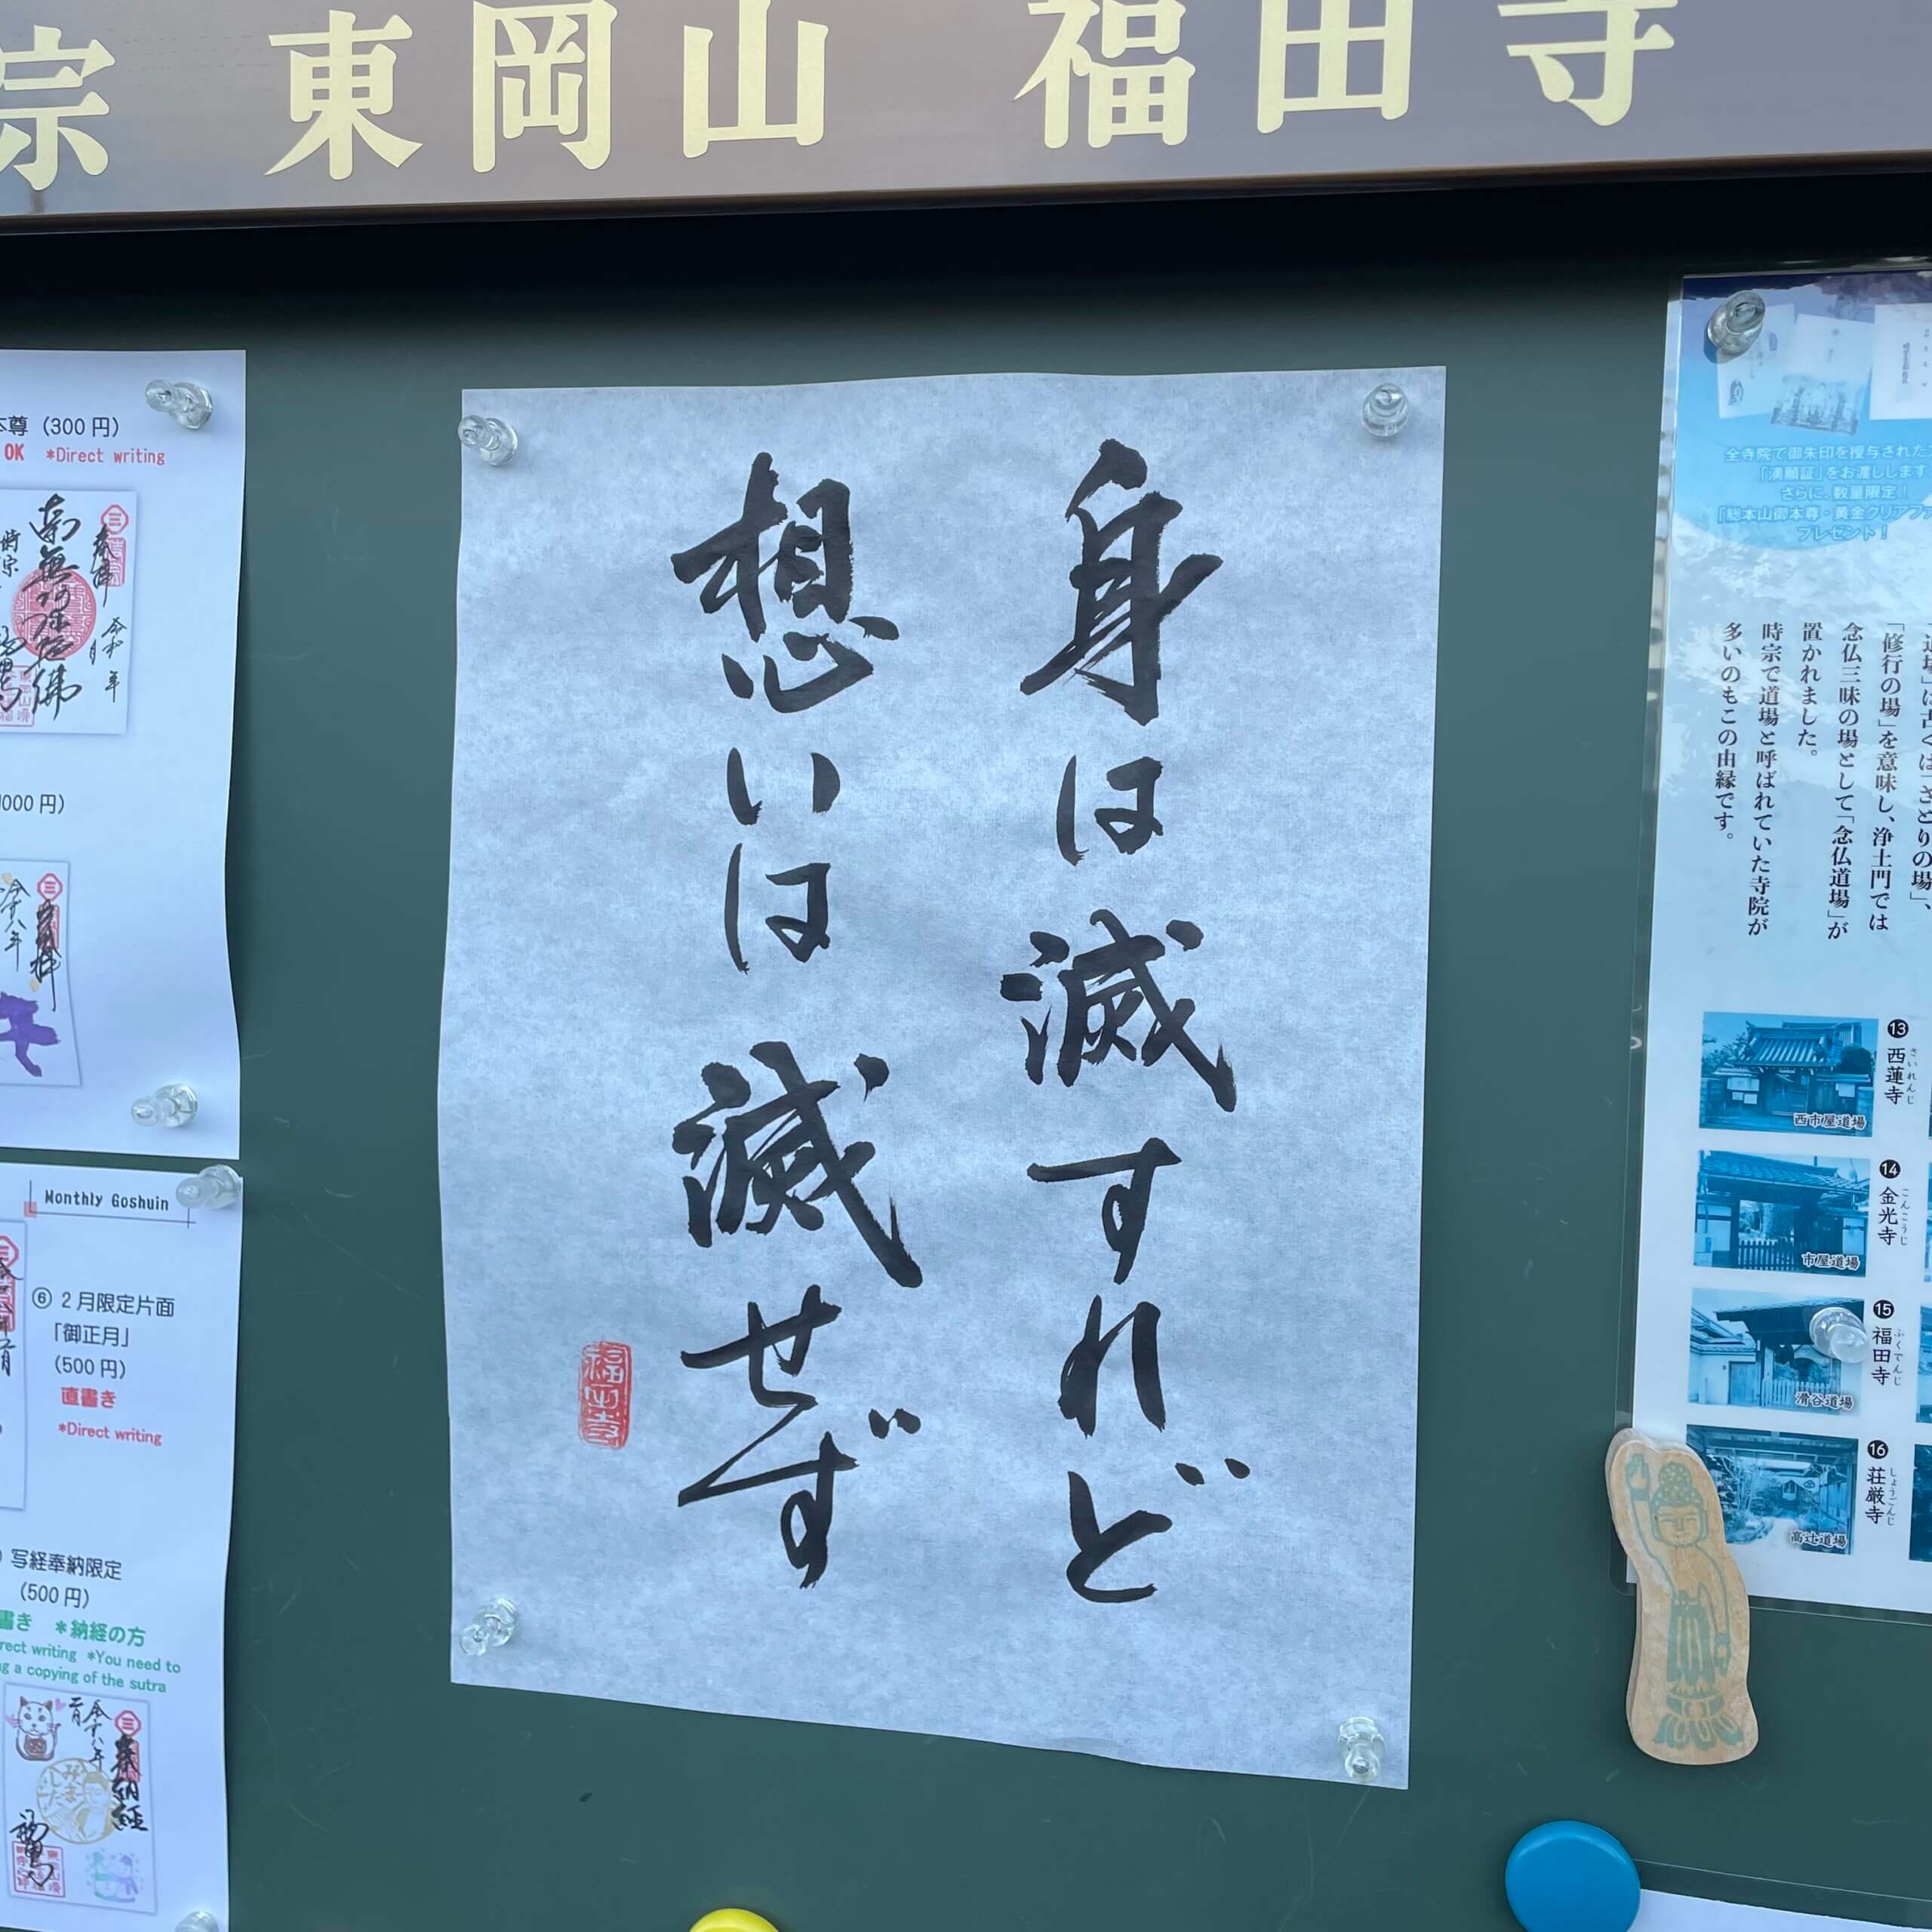 宗 東岡山 福田寺
身は滅すれど
想いは滅せず
福田寺
本尊（300円）
OK *Direct writing
南無阿弥陀佛
時宗
000円）
Monthly Goshuin
⑥ 2月限定片面
「御正月」
（500円）
直書き
*Direct writing
写経奉納限定
（500円）
書き ＊納経の方
rect writing *You need to
g a copying of the sutra
全寺院で御朱印を授与された
「満願証」をお渡しします
さらに、数量限定！
「総本山御本尊・黄金クリアファ
プレゼント！
道場」は古くは「さとりの場」、
「修行の場」を意味し、浄土門では
念仏三昧の場として「念仏道場」が
置かれました。
時宗で道場と呼ばれていた寺院が
多いのもこの由縁です。
⓭ 西蓮寺 さいれんじ
西市屋道場
⓮ 金光寺 こんこうじ
市屋道場
⓯ 福田寺 ふくでんじ
滑谷道場
⓰ 荘厳寺 しょうごんじ
高辻道場